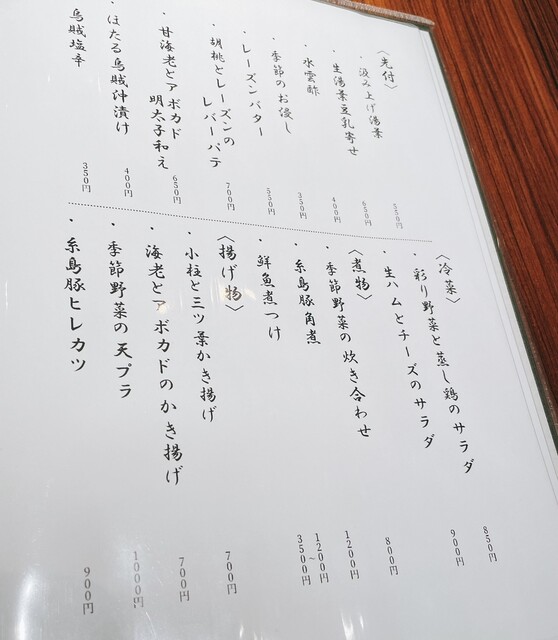 〈先付〉
・汲み上げ湯葉 550円
・生湯葉豆乳寄せ 650円
・水雲酢 400円
・季節のお浸し 350円
・レーズンバター 550円
・胡桃とレーズンの
レバーパテ 700円
・甘海老とアボカド
明太子和え 650円
・ほたる烏賊沖漬け 400円
烏賊塩辛 350円
〈冷菜〉
・彩り野菜と蒸し鶏のサラダ 850円
・生ハムとチーズのサラダ 900円
〈煮物〉
・季節野菜の炊き合わせ 800円
・糸島豚角煮 1200円
・鮮魚煮つけ 1200円~
3500円
〈揚げ物〉
・小柱と三ツ葉かき揚げ 700円
・海老とアボカドのかき揚げ 700円
・季節野菜の天プラ 1000円
・糸島豚ヒレカツ 900円